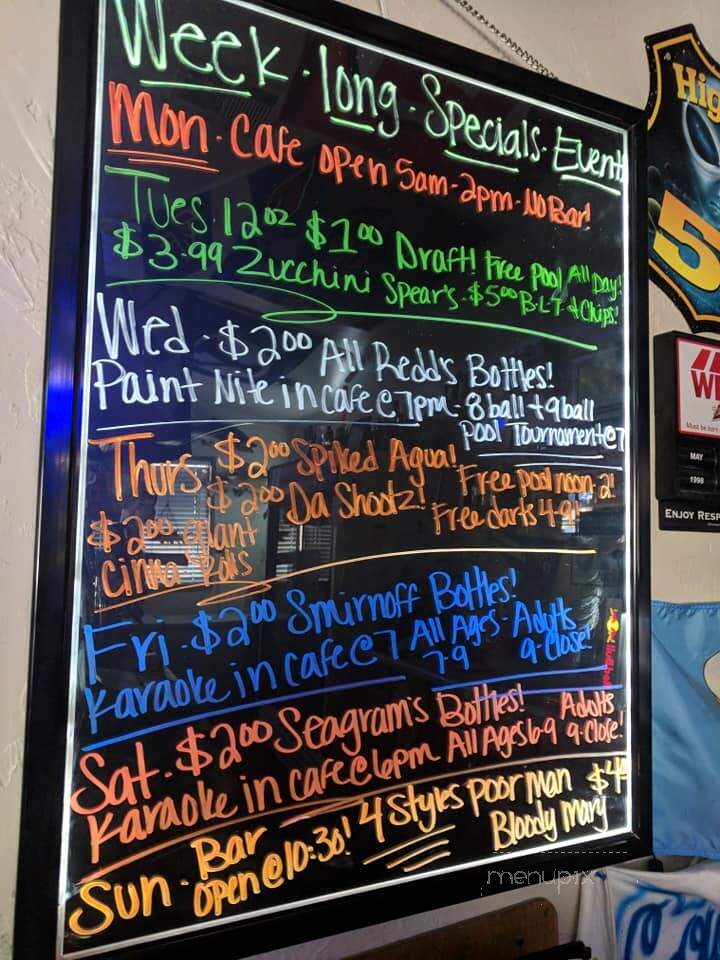 Week-long-Specials-Event
Mon-Cafe open 5am-2pm-No Bar!
Tues. 12oz $1.00 Draft! Free Pool All Day!
$3.99 Zucchini Spears-$5.00 B-L-T & Chips!
Wed-$2.00 All Redd's Bottles!
Paint Nite in cafe @ 7pm-8ball+9ball
Pool Tournament@7
Thurs $2.00 Spiked Aqua!
$2.00 Da Shootz! Free pool noon-2!
Free darts 4-9!
$2.00 Giant
Cinna Rolls
Fri-$2.00 Smirnoff Bottles!
Karaoke in cafe @7 All Ages-Adults
7-9 9-Close!
Sat-$2.00 Seagram's Bottles! Adults
Karaoke in cafe@6pm All Ages6-9 9-Close!
Sun-Bar
open@10:30! 4 Styles Poor Man $4
Bloody Mary
Hig
5
W
MAY
1998
ENJOY RESP
menupix